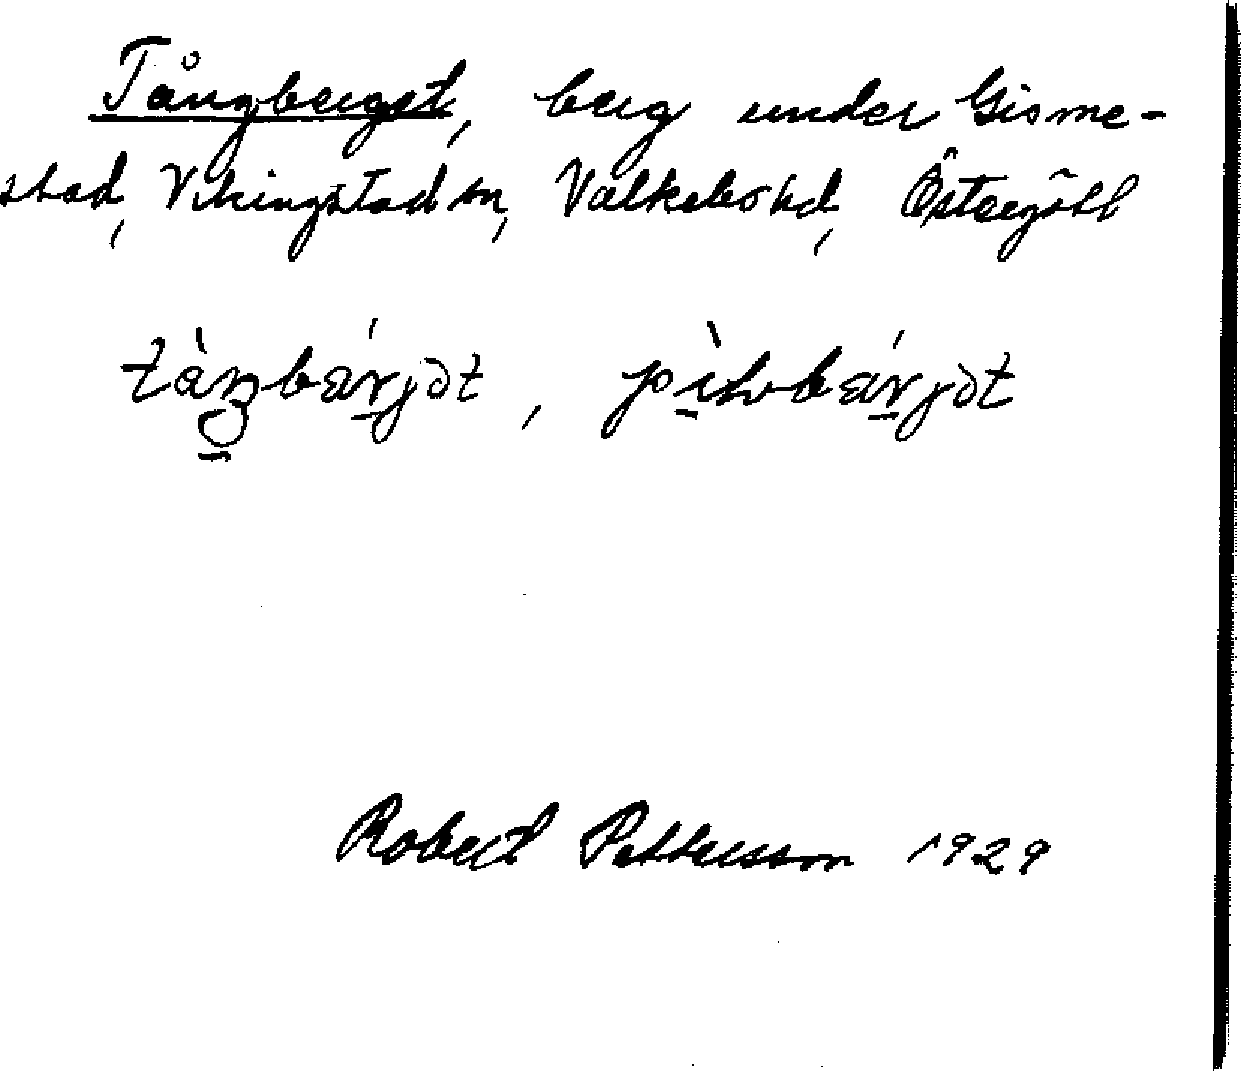 Tångberget, berg under Gisme-
stad, Vikingstad sn, Valkebo hd, Östergötl
Robert Pettersson 1929